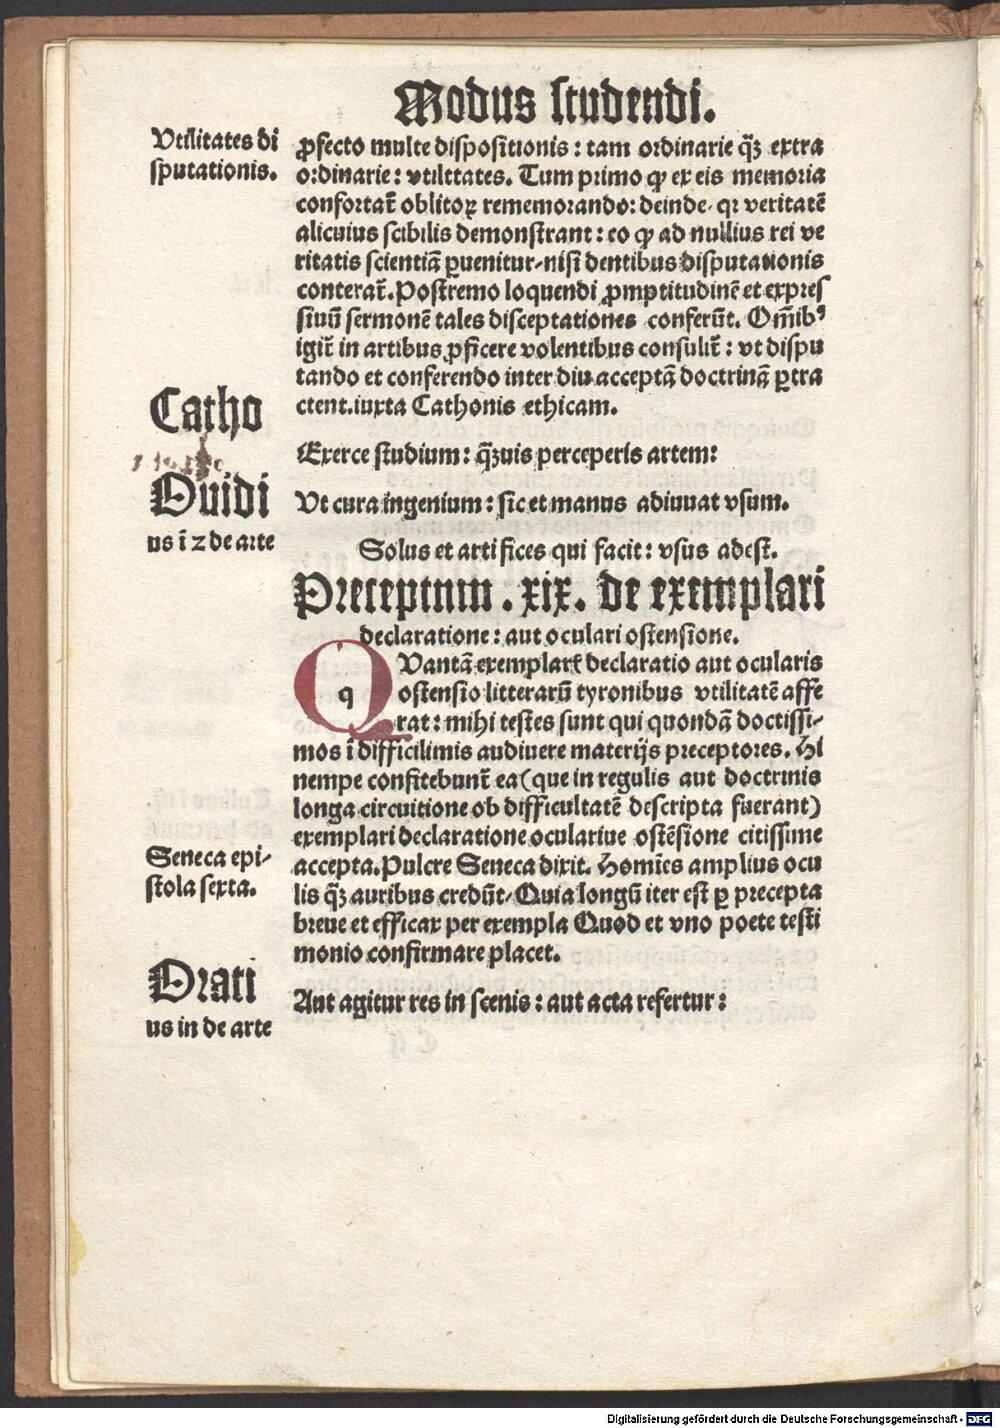 Modus studendi.
Vtilitates di
sputationis.
ꝓfecto multe dispositionis : tam ordinarie qȝ extra
ordinarie : vtilttates. Tum primo ꝙ ex eis memoria
confortat̄ oblitoꝝ rememorando: deinde qꝛ veritatē
alicuius scibilis demonstrant : eo ꝙ ad nullius rei ve
ritatis scientiā ꝑuenitur nisi dentibus disputationis
conterat̄. Postremo loquendi ꝓmptitudinē et expres
siuū sermonē tales disceptationes conferūt. Om̄ibꝰ
igit̄ in artibus ꝓficere volentibus consulit̄ : vt dispu
tando et conferendo inter diu acceptā doctrinā ꝑtra
ctent. iuxta Cathonis ethicam.
Catho
Exerce studium : qȝuis perceperis artem:
Ouidi
us ī 2 de arte
Vt cura ingenium : sic et manus adiuuat vsum.
Solus et artifices qui facit : vsus adest.
Preceptum . xix . de exemplari
declaratione : aut oculari ostensione.
QVantā exemplaris declaratio aut ocularis
q
ostensio litterarū tyronibus vtilitatē affe
rat : mihi testes sunt qui quondā doctissi-
mos ī difficilimis audiuere materijs preceptores. Hi
nempe confitebunt̄ ea (que in regulis aut doctrinis
longa circuitione ob difficultatē descripta fuerant)
exemplari declaratione oculariue ostēsione citissime
accepta. Pulcre Seneca dixit. Homīes amplius ocu
lis qȝ auribus credūt. Quia longū iter est ꝑ precepta
breue et efficax per exempla Quod et vno poete testi
monio confirmare placet.
Seneca epi-
stola sexta.
Orati
us in de arte
Aut agitur res in scenis : aut acta refertur :
Digitalisierung gefördert durch die Deutsche Forschungsgemeinschaft - DFG